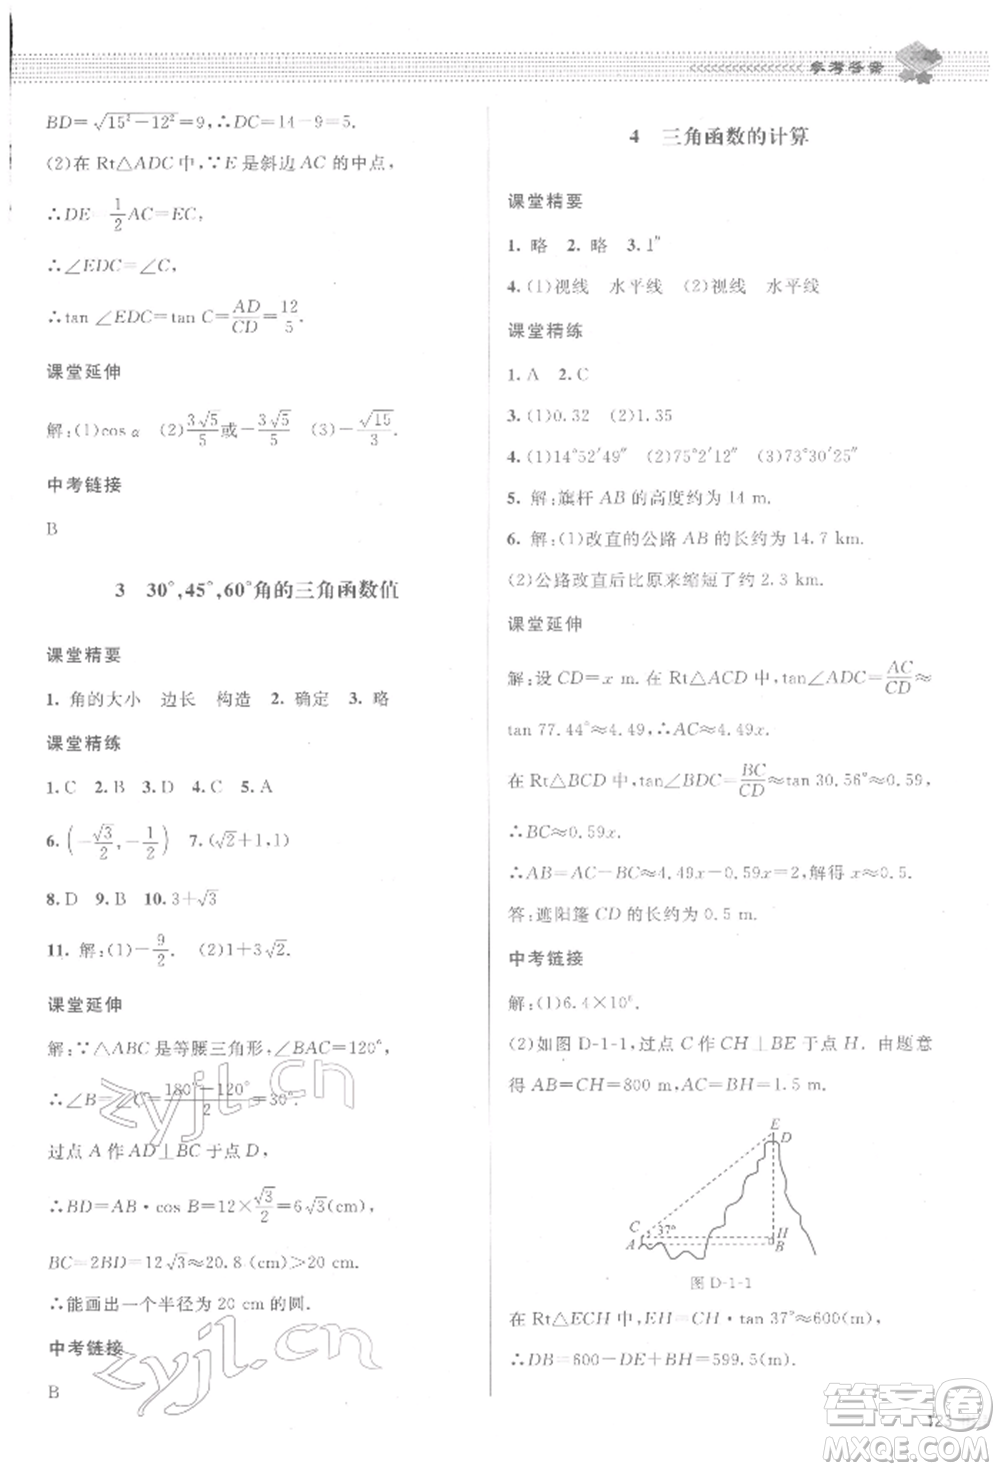 参考答案
BD=√(15²−12²)=9,∴DC=14−9=5.
(2)在 Rt△ADC 中,∵E 是斜边 AC 的中点,
∴DE=1/2 AC=EC,
∴∠EDC=∠C,
∴tan ∠EDC=tan C=AD/CD=12/5.
课堂延伸
解:(1)cos α (2)3√5/5或−3√5/5 (3)−√15/3.
中考链接
B
3 30°,45°,60°角的三角函数值
课堂精要
1. 角的大小 边长 构造 2. 确定 3. 略
课堂精练
1. C 2. B 3. D 4. C 5. A
6. (−√3/2,−1/2) 7. (√2+1,1)
8. D 9. B 10. 3+√3
11. 解:(1)−9/2. (2)1+3√2.
课堂延伸
解:∵△ABC 是等腰三角形,∠BAC=120°,
∴∠B=∠C=(180°−120°)/2=30°.
过点 A 作 AD⊥BC 于点 D,
∴BD=AB·cos B=12×√3/2=6√3(cm)
BC=2BD=12√3≈20.8(cm)>20 cm.
∴能画出一个半径为 20 cm 的圆.
中考链接
B
4 三角函数的计算
课堂精要
1. 略 2. 略 3. 1″
4. (1)视线 水平线 (2)视线 水平线
课堂精练
1. A 2. C
3. (1)0.32 (2)1.35
4. (1)14°52′49″ (2)75°2′12″ (3)73°30′25″
5. 解:旗杆 AB 的高度约为 14 m.
6. 解:(1)改直的公路 AB 的长约为 14.7 km.
(2)公路改直后比原来缩短了约 2.3 km.
课堂延伸
解:设 CD=x m. 在 Rt△ACD 中,tan∠ADC=AC/CD≈
tan 77.44°≈4.49,∴AC≈4.49x.
在 Rt△BCD 中,tan∠BDC=BC/CD≈tan 30.56°≈0.59,
∴BC≈0.59x.
∴AB=AC−BC≈4.49x−0.59x=2,解得 x≈0.5.
答:遮阳篷 CD 的长约为 0.5 m.
中考链接
解:(1)6.4×10⁶.
(2)如图 D-1-1,过点 C 作 CH⊥BE 于点 H. 由题意
得 AB=CH=800 m,AC=BH=1.5 m.
E
D
C 37° H
A B
图 D-1-1
在 Rt△ECH 中,EH=CH·tan 37°≈600(m).
∴DB=600−DE+BH=599.5(m).
123
zyjl.cn
zyjl.cn
答案圈
MXQE.COM